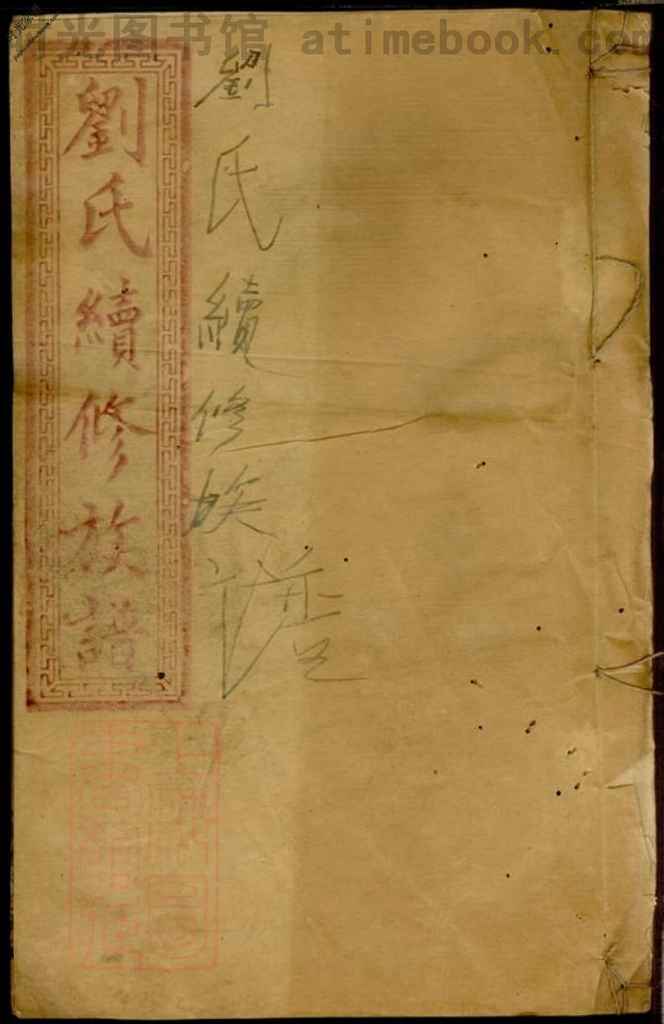 光图书馆 atimebook.com
劉氏續修族譜
劉氏續修族譜